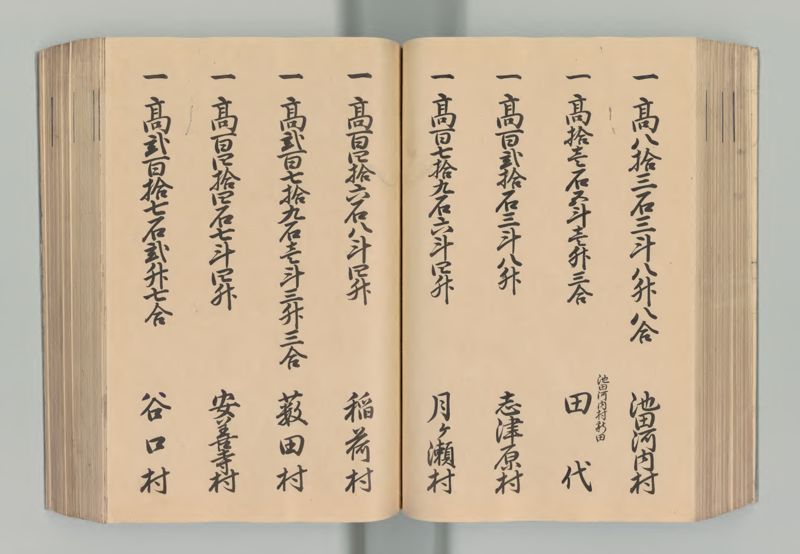 一 髙八拾三石三斗八升八合 池田河内村
池田河内村新田
一 髙拾壱石五斗壱升三合 田代
一 髙百弐拾石三斗八升 志津原村
一 髙百七拾九石六斗四升 月ヶ瀬村
一 髙百四拾六石八斗四升 稲荷村
一 髙弐百七拾九石壱斗三升三合 薮田村
一 髙百四拾四石七斗四升 安善寺村
一 髙弐百拾七石弐升七合 谷口村